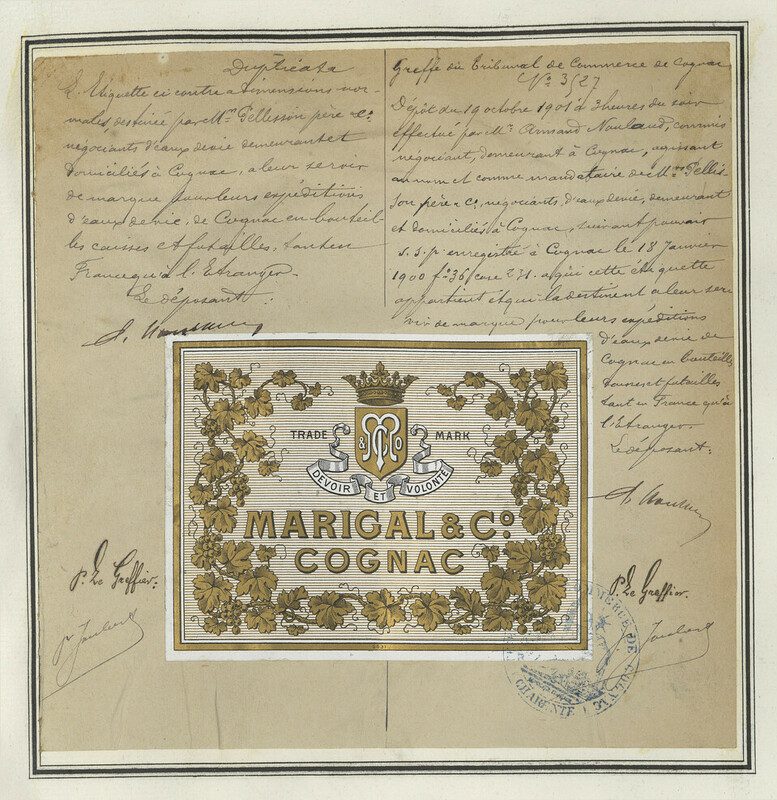 Duplicata
L'Etiquette ci contre a dimensions nor-
males, destinée par Mrs Pellisson père & Co.
négociants d'eaux de vie demeurant et
domiciliés à Cognac, a leur servir
de marque pour leurs expéditions
d'eaux de vie, de Cognac en bouteil-
les caisses et futailles, tant en
France qu'à l'Etranger.
Le déposant:
Greffe du Tribunal de Commerce de Cognac
No 3527
Dépôt du 19 octobre 1901 à 3 heures du soir
effectué par Mr Armand Nouland, commis
négociant, demeurant à Cognac, agissant
au nom et comme mandataire de Mrs Pellis-
son père & Co, négociants, d'eaux de vie, demeurant
et domiciliés à Cognac, suivant pouvoir
s. s. p. enregistré à Cognac le 18 Janvier
1900 fo 36, case 31. a qui cette étiquette
appartient et qui la destinent a leur ser
vir de marque pour leurs expéditions
d'eaux de vie de
Cognac en bouteilles
caisses et futailles
tant en France qu'à
l'Etranger.
Le déposant:
TRADE MARK
& Co
DEVOIR ET VOLONTÉ
MARIGAL & Co
COGNAC
P. Le Greffier.
P. Le Greffier.
COMMERCE DE COGNAC
CHARENTE